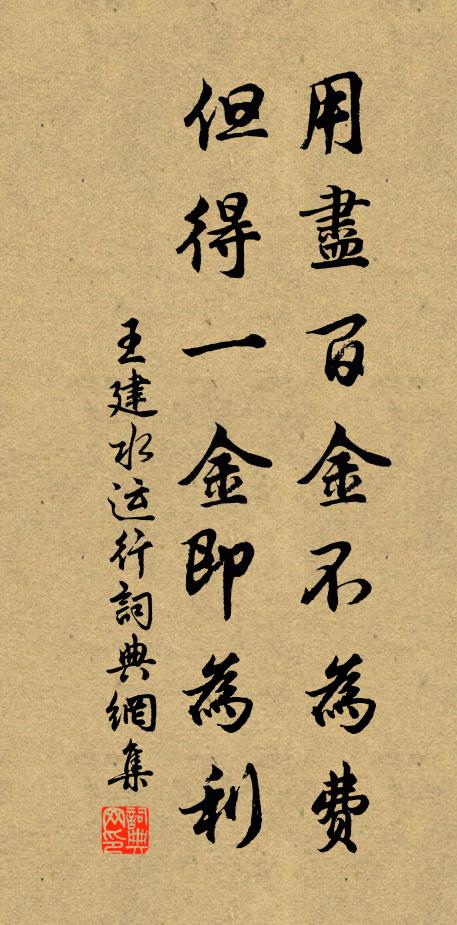 用盡百金不為費
但得一金即為利
王建水运行詞典網集
詞典網印